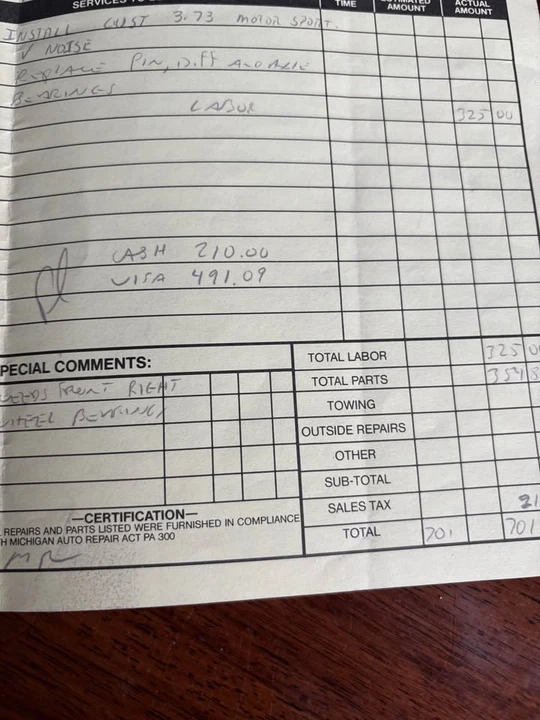 SERVICES TO
TIME
ESTIMATED AMOUNT
ACTUAL AMOUNT
INSTALL CUST 3.73 MOTOR SPORT.
√ NOISE
REPLACE PIN, DIFF AND AXLE
BEARINGS
LABOR 325 00
CASH 210.00
VISA 491.09
PECIAL COMMENTS:
EEDS FRONT RIGHT
WHEEL BEARINGS
TOTAL LABOR 325 0
TOTAL PARTS 354 8
TOWING
OUTSIDE REPAIRS
OTHER
SUB-TOTAL
SALES TAX 21
TOTAL 701 701
—CERTIFICATION—
REPAIRS AND PARTS LISTED WERE FURNISHED IN COMPLIANCE
H MICHIGAN AUTO REPAIR ACT PA 300